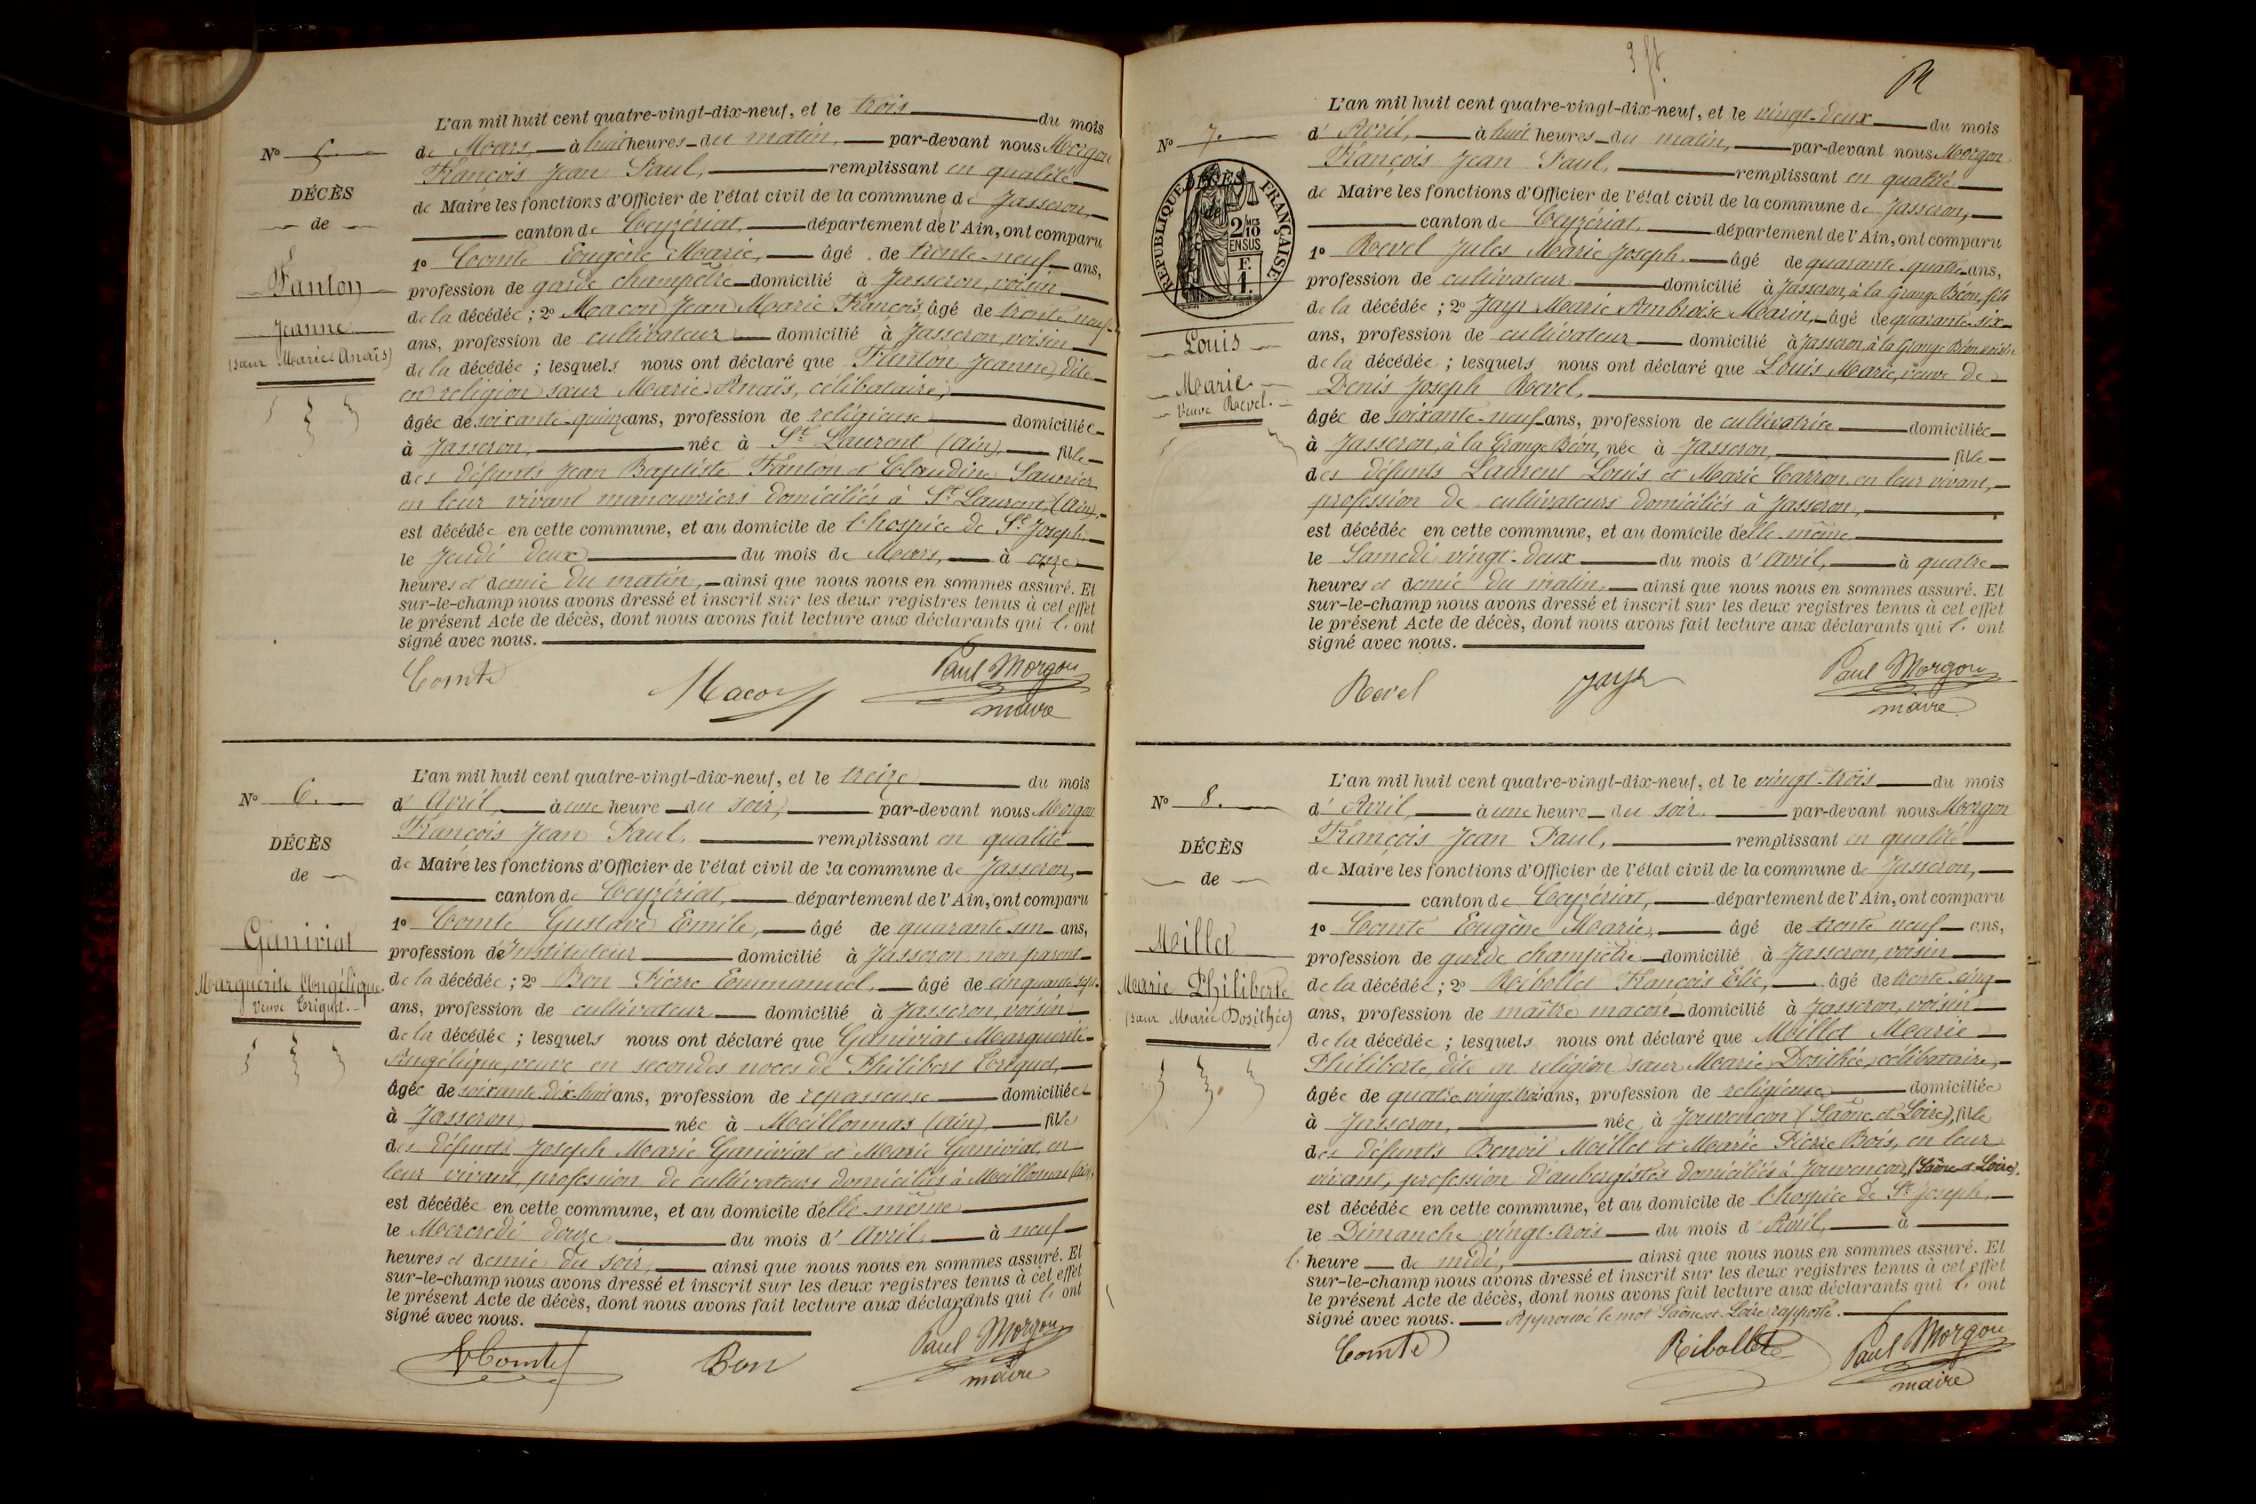 N° 5.
DÉCÈS
de
Fanton
Jeanne
(sœur Marie Anaïs)
L'an mil huit cent quatre-vingt-dix-neuf, et le trois du mois
de Mars, à huit heures du matin, par-devant nous Morgon
François Jean Paul, remplissant en qualité
de Maire les fonctions d'Officier de l'état civil de la commune de Jasseron,
canton de Ceyzériat, département de l'Ain, ont comparu
1° Comte Eugène Marie, âgé de trente-neuf ans,
profession de garde champêtre domicilié à Jasseron, voisin
de la décédée ; 2° Macon Jean Marie François, âgé de trente neuf
ans, profession de cultivateur domicilié à Jasseron, voisin
de la décédée ; lesquels nous ont déclaré que Fanton Jeanne, dite
en religion sœur Marie Anaïs, célibataire,
âgée de soixante-quinze ans, profession de religieuse domiciliée
à Jasseron, née à St Laurent (Ain), fille
des défunts Jean Baptiste Fanton et Claudine Saunier
en leur vivant manouvriers domiciliés à St Laurent, (Ain),
est décédée en cette commune, et au domicile de l'hospice de St Joseph,
le Jeudi deux du mois de Mars, à onze
heures et demie du matin, ainsi que nous nous en sommes assuré. Et
sur-le-champ nous avons dressé et inscrit sur les deux registres tenus à cet effet
le présent Acte de décès, dont nous avons fait lecture aux déclarants qui l' ont
signé avec nous.
Comte Macon Paul Morgon
maire
N° 6.
DÉCÈS
de
Ganiviat
Marguerite Angélique
Veuve Criquet.
L'an mil huit cent quatre-vingt-dix-neuf, et le treize du mois
d' Avril, à une heure du soir, par-devant nous Morgon
François Jean Paul, remplissant en qualité
de Maire les fonctions d'Officier de l'état civil de la commune de Jasseron,
canton de Ceyzériat, département de l'Ain, ont comparu
1° Comte Gustave Emile, âgé de quarante-un ans,
profession d'Instituteur domicilié à Jasseron non parent
de la décédée ; 2° Bon Pierre Emmanuel, âgé de cinquante-sept
ans, profession de cultivateur domicilié à Jasseron, voisin
de la décédée ; lesquels nous ont déclaré que Ganiviat Marguerite
Angélique, veuve en secondes noces de Philibert Criquet,
âgée de soixante dix-huit ans, profession de repasseuse domiciliée
à Jasseron, née à Meillonnas (Ain), fille
des défunts Joseph Marie Ganiviat et Marie Ganiviat, en
leur vivant profession de cultivateurs domiciliés à Meillonnas (Ain),
est décédée en cette commune, et au domicile d'elle-même
le Mercredi douze du mois d' Avril, à neuf
heures et demie du soir, ainsi que nous nous en sommes assuré. Et
sur-le-champ nous avons dressé et inscrit sur les deux registres tenus à cet effet
le présent Acte de décès, dont nous avons fait lecture aux déclarants qui l' ont
signé avec nous.
Comte Bon Paul Morgon
maire
N° 7.
REPUBLIQUE FRANÇAISE
2/10 EN SUS
F. 1.
Louis
Marie
Veuve Revel.
L'an mil huit cent quatre-vingt-dix-neuf, et le vingt-deux du mois
d' Avril, à huit heures du matin, par-devant nous Morgon
François Jean Paul, remplissant en qualité
de Maire les fonctions d'Officier de l'état civil de la commune de Jasseron,
canton de Ceyzériat, département de l'Ain, ont comparu
1° Revel Jules Marie Joseph, âgé de quarante-quatre ans,
profession de cultivateur domicilié à Jasseron, à la Grange Béon, fils
de la décédée ; 2° Jayr Marie Ambroise Marin, âgé de quarante-six
ans, profession de cultivateur domicilié à Jasseron, à la Grange Béon, voisin
de la décédée ; lesquels nous ont déclaré que Louis Marie, veuve de
Denis Joseph Revel,
âgée de soixante-neuf ans, profession de cultivatrice domiciliée
à Jasseron, à la Grange Béon, née à Jasseron, fille
des défunts Laurent Louis et Marie Carron, en leur vivant,
profession de cultivateurs domiciliés à Jasseron,
est décédée en cette commune, et au domicile d'elle-même
le Samedi vingt-deux du mois d' Avril, à quatre
heures et demie du matin, ainsi que nous nous en sommes assuré. Et
sur-le-champ nous avons dressé et inscrit sur les deux registres tenus à cet effet
le présent Acte de décès, dont nous avons fait lecture aux déclarants qui l' ont
signé avec nous.
Revel Jayr Paul Morgon
maire
N° 8.
DÉCÈS
de
Meillet
Marie Philiberte
(sœur Marie Dosithée)
L'an mil huit cent quatre-vingt-dix-neuf, et le vingt-trois du mois
d' Avril, à une heure du soir par-devant nous Morgon
François Jean Paul, remplissant en qualité
de Maire les fonctions d'Officier de l'état civil de la commune de Jasseron,
canton de Ceyzériat, département de l'Ain, ont comparu
1° Comte Eugène Marie, âgé de trente neuf ans,
profession de garde champêtre domicilié à Jasseron voisin
de la décédée ; 2° Ribollet François Elie, âgé de trente cinq
ans, profession de maître maçon domicilié à Jasseron, voisin
de la décédée ; lesquels nous ont déclaré que Meillet Marie
Philiberte, dite en religion sœur Marie Dosithée, célibataire,
âgée de quatre-vingt-trois ans, profession de religieuse domiciliée
à Jasseron, née à Jouvençon (Saône et Loire), fille
des défunts Benoît Meillet et Marie Pierre Bois, en leur
vivant, profession d'aubergistes domiciliés à Jouvençon, (Saône et Loire).
est décédée en cette commune, et au domicile de l'hospice de St Joseph,
le Dimanche vingt-trois du mois d' Avril, à
l' heure de midi, ainsi que nous nous en sommes assuré. Et
sur-le-champ nous avons dressé et inscrit sur les deux registres tenus à cet effet
le présent Acte de décès, dont nous avons fait lecture aux déclarants qui l' ont
signé avec nous. Approuvé le mot Saône et Loire rapporté.
Comte Ribollet Paul Morgon
maire